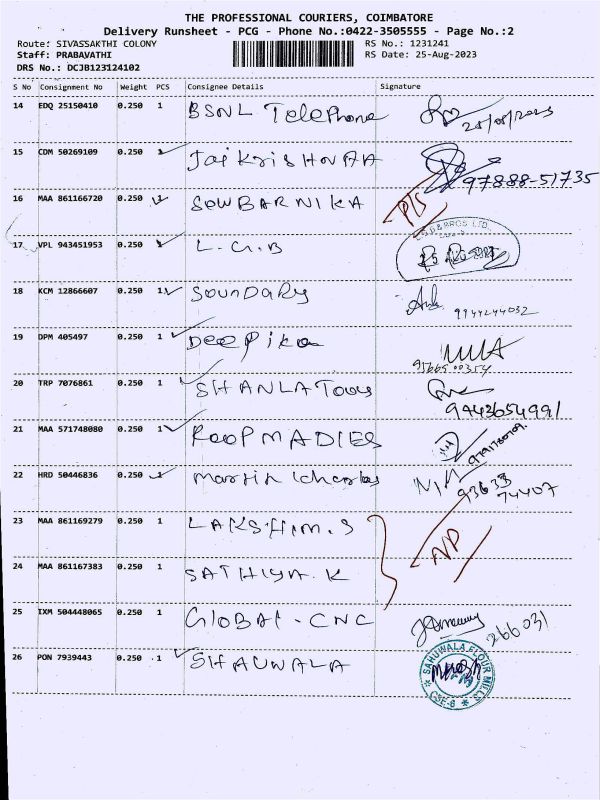 THE PROFESSIONAL COURIERS, COIMBATORE
Delivery Runsheet - PCG - Phone No.:0422-3505555 - Page No.:2
Route: SIVASSAKTHI COLONY RS No.: 1231241
Staff: PRABAVATHI RS Date: 25-Aug-2023
DRS No.: DCJB123124102
S No Consignment No Weight PCS Consignee Details Signature
14 EDQ 25150410 0.250 1 BSNL Telephone 25/08/2023
15 CDM 50269109 0.250 1 Jai Krishnaa 97888-51735
16 MAA 861166720 0.250 1 SOWBARNIKA P/S
17 VPL 943451953 0.250 1 L.G.B & BROS LTD.
18 KCM 12866607 0.250 1 Soundary 9944244032
19 DPM 405497 0.250 1 Deepika
20 TRP 7076861 0.250 1 SHANLA Toous 9443654991
21 MAA 571748080 0.250 1 ROOP MADIES
22 HRD 50446836 0.250 1 Martin 93633 74407
23 MAA 861169279 0.250 1 LAKSHIM.S
24 MAA 861167383 0.250 1 SATHIYA.K NP
25 IXM 504448065 0.250 1 GlOBAl - CNC 266031
26 PON 7939443 0.250 1 SHAUWALA SAHUWALA FLOUR MILLS CSE-6